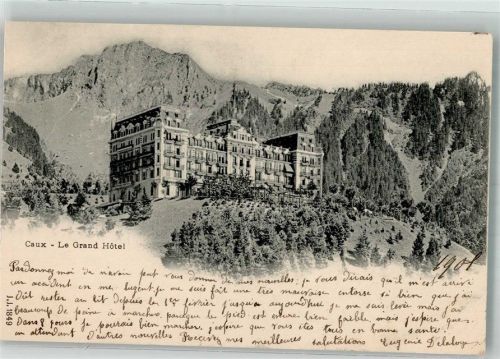 Caux - Le Grand Hôtel
1901
J.J. 1849
Pardonnez-moi de n'avoir peut vous donner de mes nouvelles; je vous dirais qu'il m'est arrivé
un accident en me je me suis fait une très mauvaise entorse si bien que j'ai
dût rester au lit depuis le 1er février jusqu'a aujourd'hui je me suis levée mais j'ai
beaucoup de peine à marcher, parceque le pied est encore bien faible, mais j'espère que
dans 8 jours je pourrais bien marcher, j'espère que vous êtes tres en bonne santé.
en attendant d'autres nouvelles Recevez mes meilleures salutations Eugénie